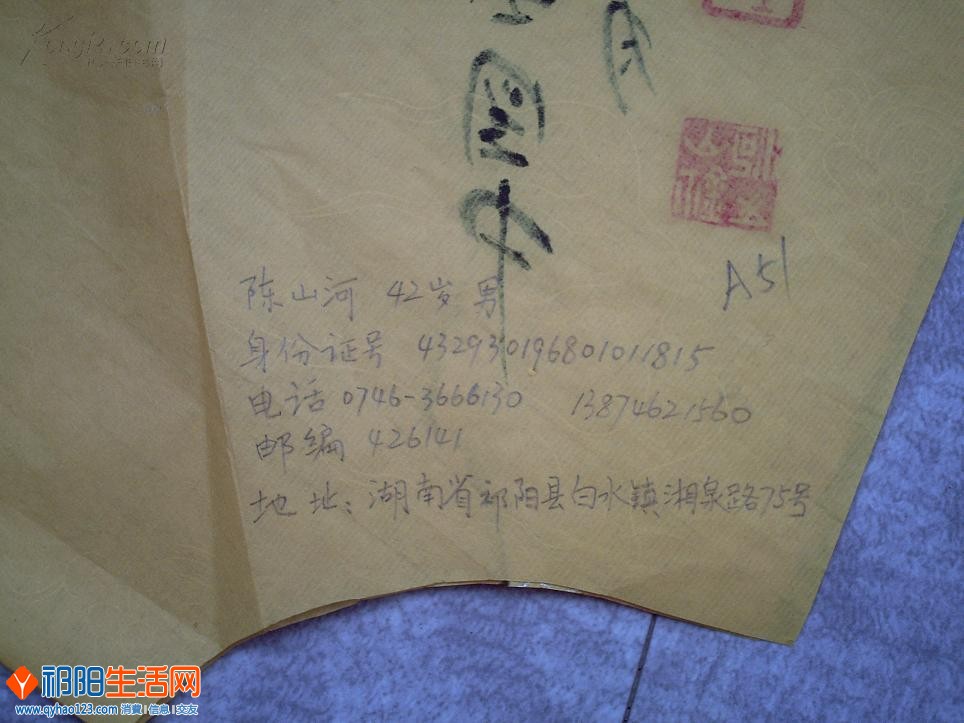 A51
陈山河 42岁 男
身份证号 432930196801011815
电话 0746-3666130 13874621560
邮编 426141
地址:湖南省祁阳县白水镇湘泉路75号
祁阳生活网
www.qyhao123.com 消费|信息|交友